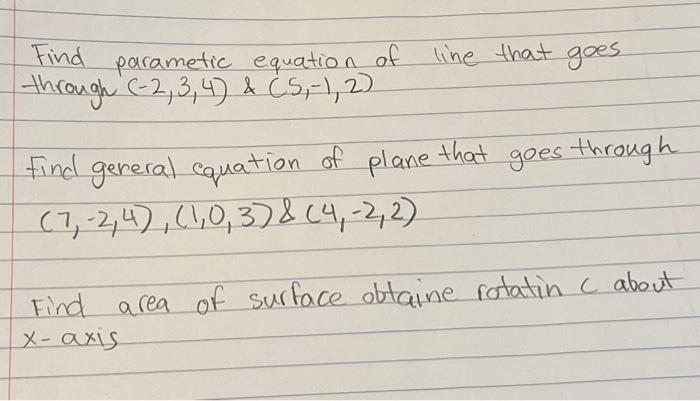 Find parametic equation of line that goes
through (-2,3,4) & (5,-1,2)
find general equation of plane that goes through
(7,-2,4),(1,0,3)&(4,-2,2)
Find area of surface obtaine rotatin c about
x-axis